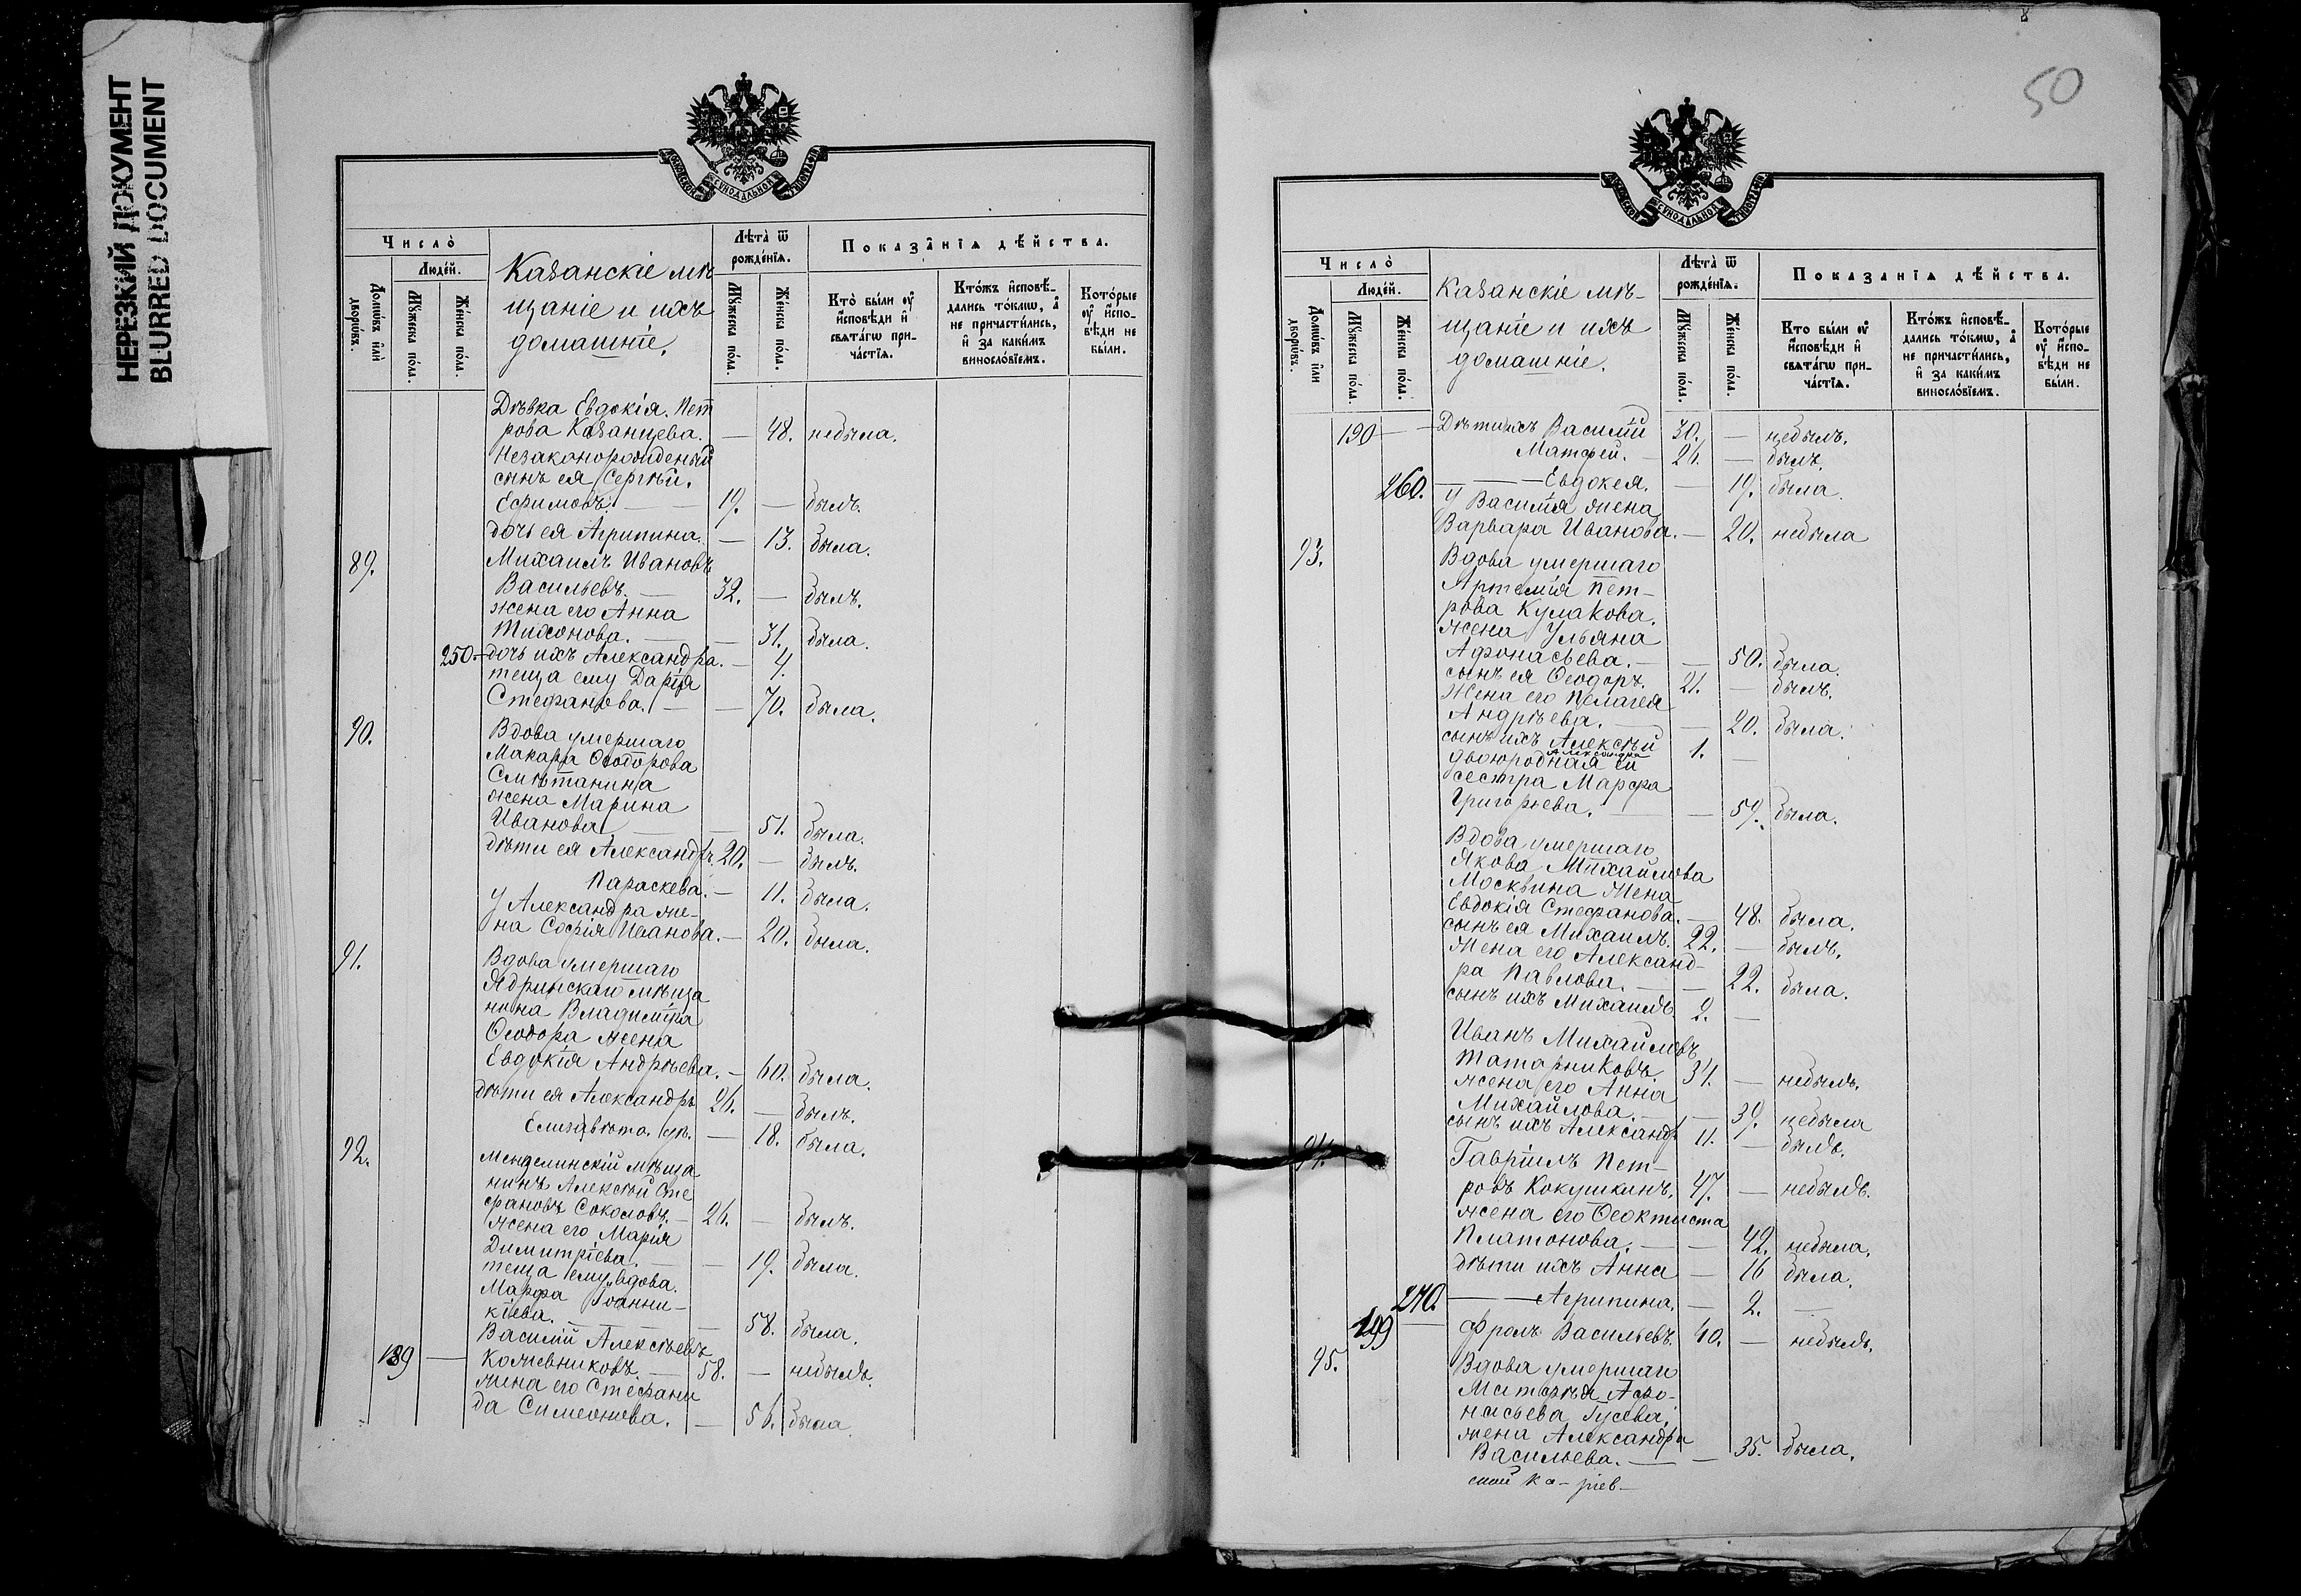 НЕРЕЗКИЙ ДОКУМЕНТ
BLURRED DOCUMENT
МОСКОВСКОЙ СѴНОДАЛЬНОЙ ТИПОГРАФІИ
Число̀
Людéй.
Домѡ́въ и҆лѝ дворѡ́въ.
Мꙋ́жеска пóла.
Же́нска пóла.
Казанскіе мѣ
щаніе и ихъ
домашніе.
Лѣ́та ѿ рождéнїѧ.
Мꙋ́жеска пóла.
Же́нска пóла.
Показа̑нїѧ дѣ́йства.
Ктò бы́ли оу҆ и҆сповѣ́ди и҆ свѧтáгѡ причáстїѧ.
Ктóжъ и҆сповѣ́дались тóкмѡ, а҆ не причасти́лись, и҆ за каки́мъ винослóвїемъ.
Котóрые оу҆ и҆сповѣ́ди не бы́ли.
Дѣвка Евдокія Пет
рова Казанцева. — 48. небыла.
Незаконорожденый
сынъ ея Сергѣй.
Ефимовъ. — 19. — былъ.
дочь ея Агрипина. — 13. была.
89. Михаилъ Ивановъ
Васильевъ. — 32. — былъ.
жена его Анна
Тихонова. — 31. была.
250. дочь ихъ Александра. — 4.
теща ему Дарія
Стефанова. — 70. была.
90. Вдова умершаго
Макара Ѳеодорова
Смѣтанина
жена Марина
Иванова — 51. была.
дѣти ея Александръ. 20. — былъ.
Параскева. — 11. была.
у Александра же-
на Софія Иванова. — 20. была.
91. Вдова умершаго
Ядринскаго мѣща
нина Владиміра
Ѳеодора жена
Евдокія Андрѣева. — 60. была.
дѣти ея Александръ 26. — былъ.
Елизавѣта. — 18. была.
92. Мензелинскій мѣща
нинъ Алексѣй Сте
фановъ Соколовъ. — 26. — былъ.
жена его Марія
Димитріева. — 19. была.
теща ему вдова
Марфа Іоанни-
кіева. — 58. была.
Василій Алексѣевъ
189 — Кожевниковъ. — 58. — небылъ.
жена его Стефани
да Симеонова. — 56. была.
50
МОСКОВСКОЙ СѴНОДАЛЬНОЙ ТИПОГРАФІИ
Число̀
Людéй.
Домѡ́въ и҆лѝ дворѡ́въ.
Мꙋ́жеска пóла.
Же́нска пóла.
Казанскіе мѣ-
щаніе и ихъ
домашніе.
Лѣ́та ѿ рождéнїѧ.
Мꙋ́жеска пóла.
Же́нска пóла.
Показанїѧ дѣ́йства.
Кто бы́ли оу҆ и҆сповѣ́ди и҆ свѧтáгѡ причáстїѧ.
Ктóжъ и҆сповѣ́дались тóкмѡ, а҆ не причасти́лись, и҆ за каки́мъ винослóвїемъ.
Котóрые оу҆ и҆сповѣ́ди не бы́ли.
190 — Дѣти ихъ Василій 30. — небылъ.
Матфей. — 26. — былъ.
260. — Евдокея. — 19. была.
у Василія жена
Варвара Иванова. — 20. небыла
93. Вдова умершаго
Артемія Пет-
рова Кулакова.
жена Ульяна
Афонасьева. — 50. была.
сынъ ея Ѳеодоръ. 21. — былъ.
Жена его Пелагея
Андрѣева. — 20. была.
сынъ ихъ Алексѣй 1. —
Александра
двоюродная ей
сестра Марфа
Григорьева. — 59. была.
Вдова умершаго
Якова Михайлова
Москвина жена
Евдокія Стефанова. — 48. была.
сынъ ея Михаилъ. 22. — былъ.
Жена его Александ-
ра Павлова. — 22. была.
сынъ ихъ Михаилъ 2. —
Иванъ Михайловъ
Татарниковъ 34. — небылъ.
жена его Анна
Михайлова. — 39. небыла
сынъ ихъ Александръ 11. — былъ.
94. Гавріилъ Пет-
ровъ Кокушкинъ. 47. — небылъ.
жена его Ѳеоктиста
Платонова. — 42. небыла.
дѣти ихъ Анна — 16 была.
270. — Агрипина. — 2. —
199 — Фролъ Васильевъ. 40. — небылъ.
95. Вдова умершаго
Матфѣя Афо-
насьева Гусева,
жена Александра
Васильева. — 35. была.